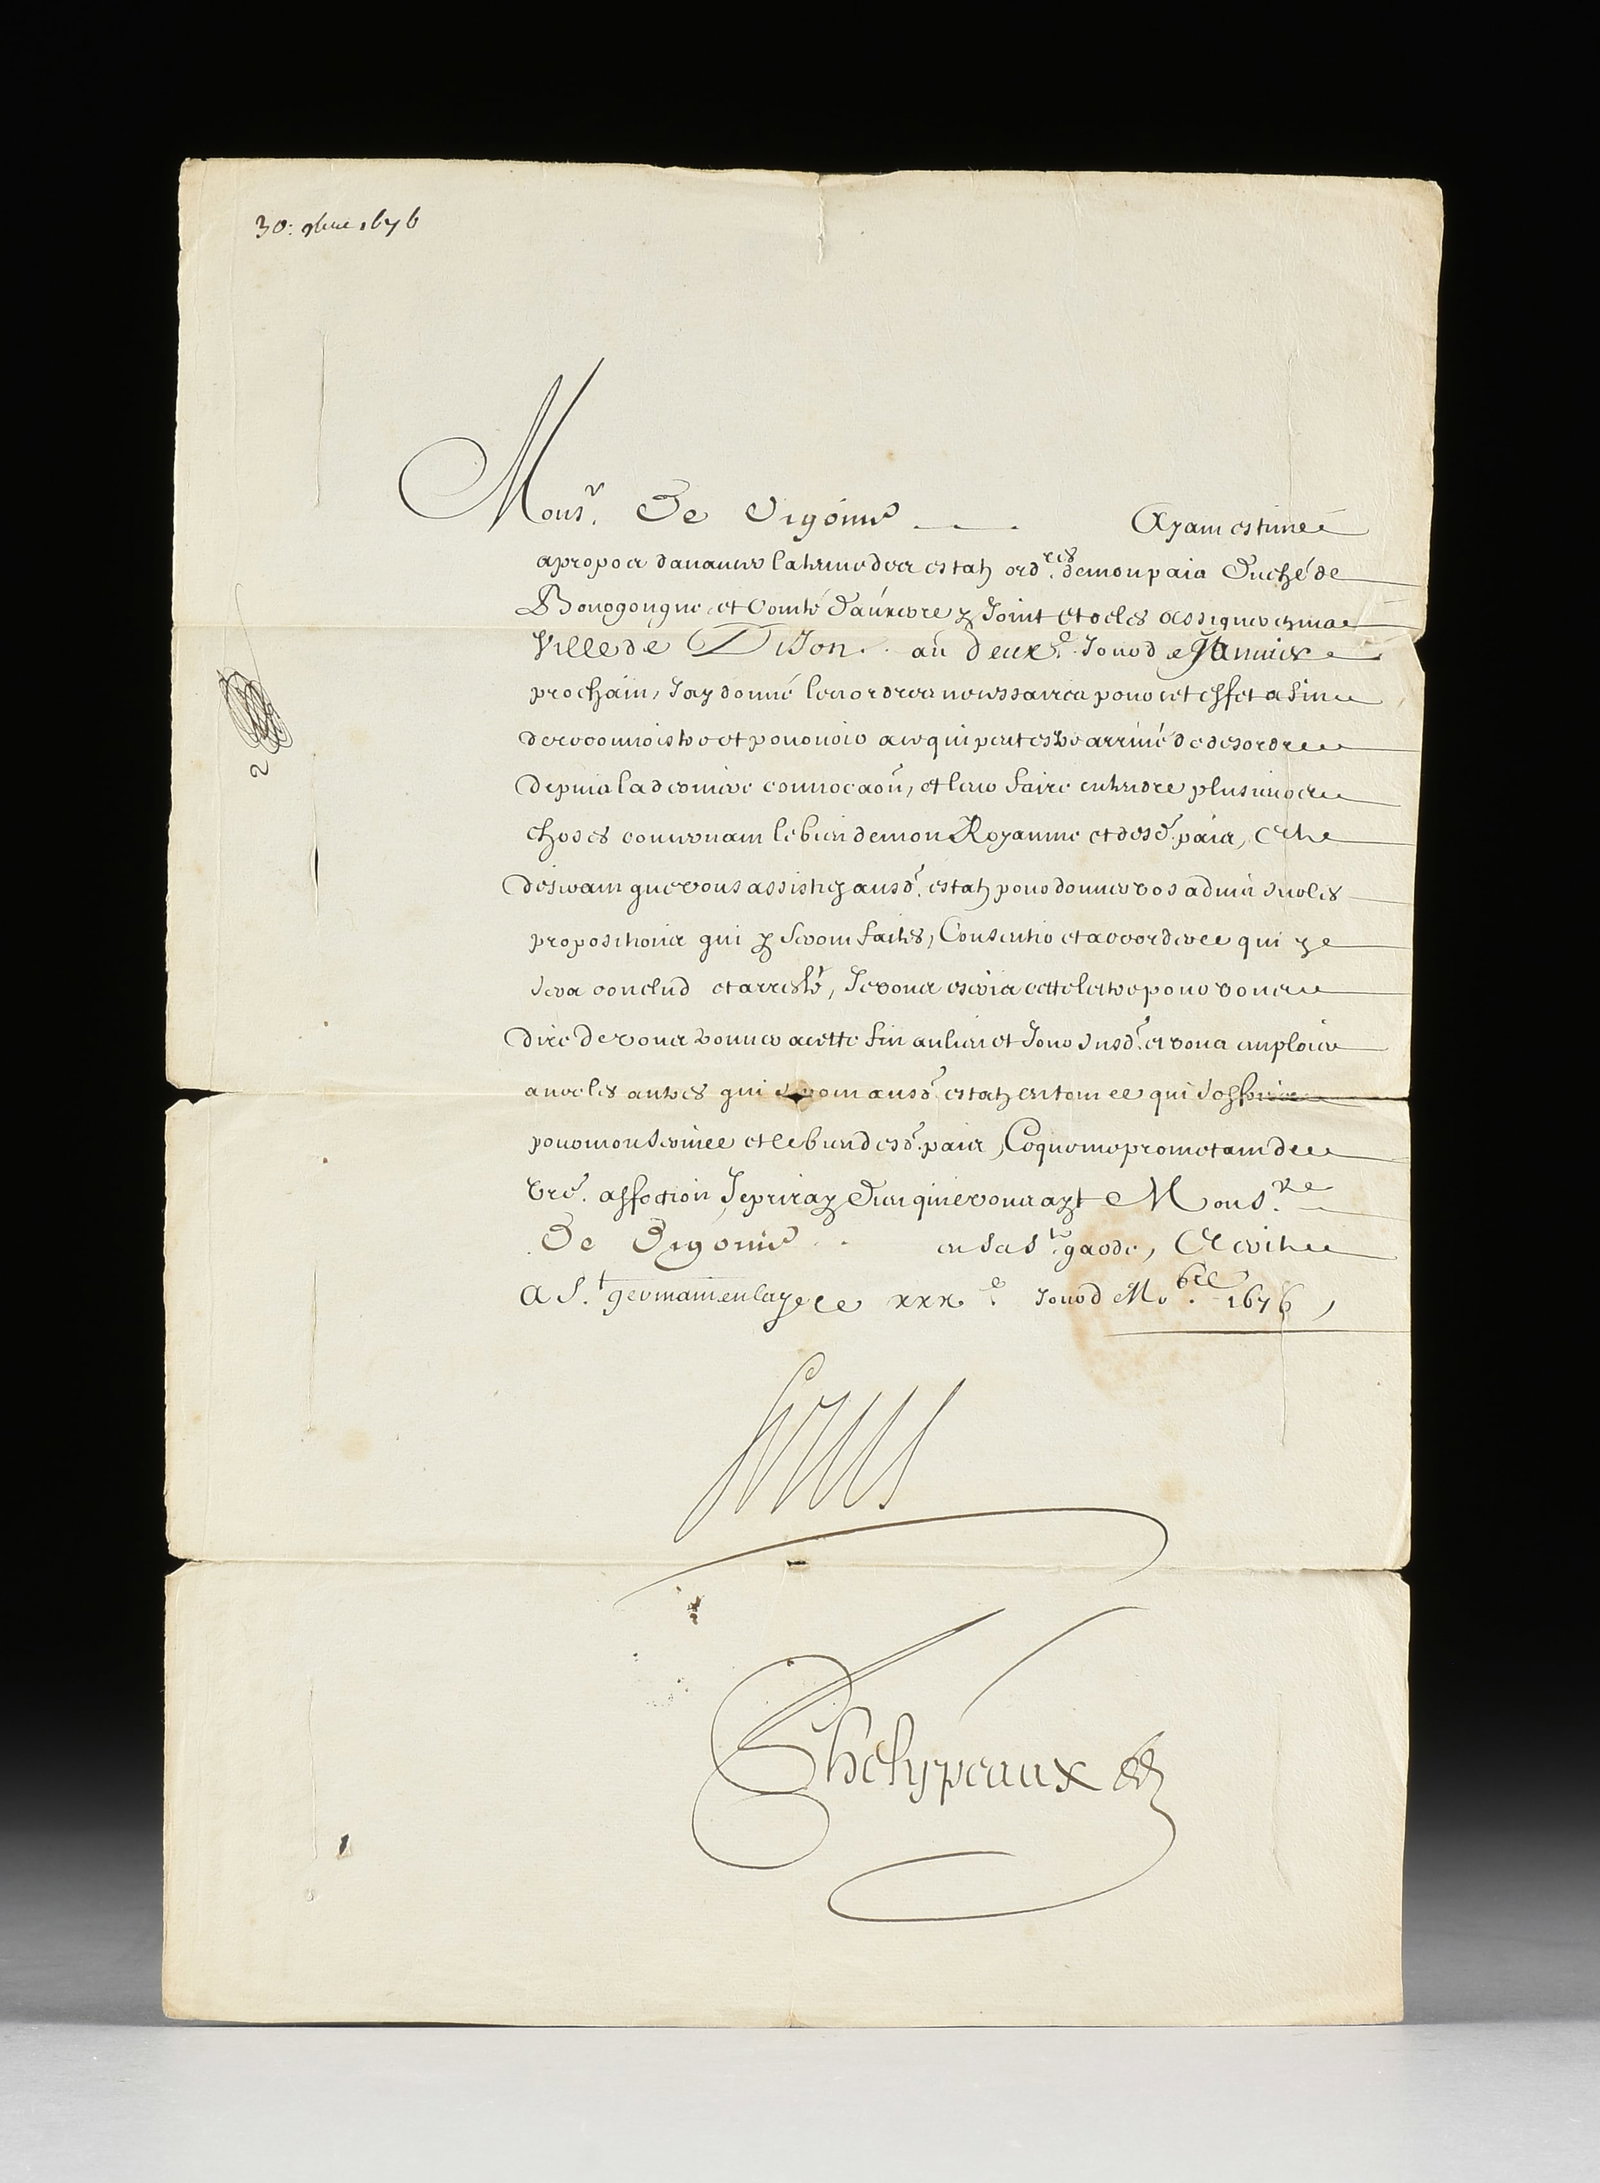 30: 9bre 1676
Monsr. De Vigónne Ayant estimé
a propos d'avancer la tenue des estatz ordres. de mon pais Duché de
Bourgongne, et Comté d'aúxerre y Joint et de les assigner en ma
Ville de Dijon. au Deuxe. Jour de Janvier
prochain, J'ay donné les ordres necessaires pour cet effet afin
de recónnoistre et pourvoir a ce qui peut estre arrivé de desordre
depuis la derniere convocaõn, et leur faire entendre plusieurs
choses concernant le bien de mon Royaume et desd. pais, Et
desirant que vous assistiez ausd. estatz pour donner vos advis sur les
propositions qui y seront faites, Consentir et accorder ce qui y
sera conclud et arresté, Je vous escris cette lettre pour vous
dire de vous trouver a cette fin au lieu et Jour susd. et vous emploier
avec les autres qui seront ausd. estatz en tout ce qui s'offrira
pour mon service et le bien desd. pais, Ce que me promettant de
vre. affection Je priray Dieu qu'il vous ayt Monsr.
De Vigónne en sa ste. garde, Escrit
a St. germain en laye le xxxe. Jour de Novbre. 1676,
Louis
Phelypeaux
2